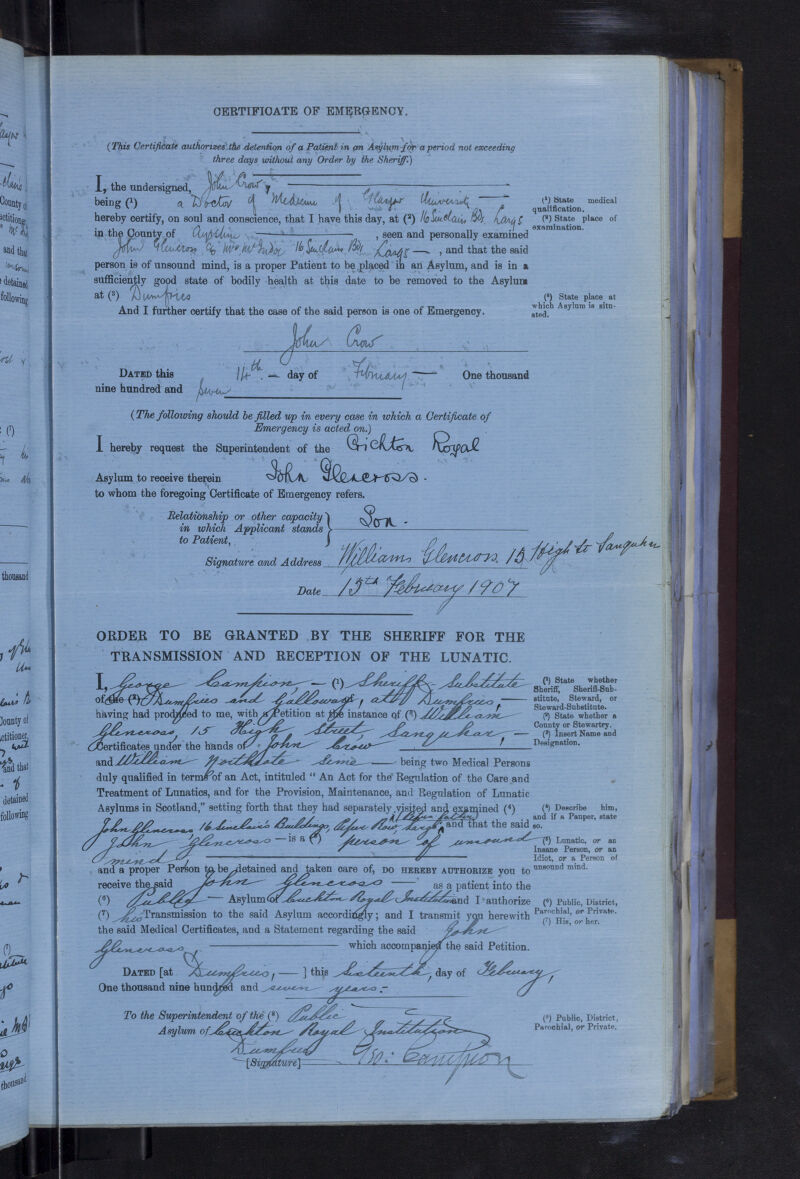 CERTIFICATE OF EMERGENCY.
(This Certificate authorizes the detention of a Patient in an Asylum for a period not exceeding
three days without any Order by the Sheriff.)
I, the undersigned, John Crow,
being (¹) a Doctor of Medicine of Glasgow University
hereby certify, on soul and conscience, that I have this day, at (²) 16 Sinclair Bds Largs
in the County of Ayrshire, seen and personally examined
John Glencross 16 Sinclair Bds Largs, and that the said
person is of unsound mind, is a proper Patient to be placed in an Asylum, and is in a
sufficiently good state of bodily health at this date to be removed to the Asylum
at (³) Dumfries
And I further certify that the case of the said person is one of Emergency.
(¹) State medical
qualification.
(²) State place of
examination.
(³) State place at
which Asylum is situ-
ated.
John Crow
DATED this 14th. day of February One thousand
nine hundred and seven
(The following should be filled up in every case in which a Certificate of
Emergency is acted on.)
I hereby request the Superintendent of the Crichton Royal
Asylum to receive therein John Glencross.
to whom the foregoing Certificate of Emergency refers.
Relationship or other capacity
in which Applicant stands
to Patient,
Son.
Signature and Address William Glencross. 15 High St Sanquhar
Date 15th February 1907
ORDER TO BE GRANTED BY THE SHERIFF FOR THE
TRANSMISSION AND RECEPTION OF THE LUNATIC.
I, George Campion - (¹) Sheriff-Substitute
of the (²) Dumfries and Galloway, at Dumfries,
having had produced to me, with a Petition at the instance of (³) William
Glencross, 15 High Street, Sanquhar,
Certificates under the hands of John Crow
and William Northcote being two Medical Persons
duly qualified in terms of an Act, intituled "An Act for the Regulation of the Care and
Treatment of Lunatics, and for the Provision, Maintenance, and Regulation of Lunatic
Asylums in Scotland," setting forth that they had separately visited and examined (⁴)
John Glencross, 16 Sinclair's Buildings, Row, Largs, and that the said
John Glencross - is a (⁵) person of unsound
mind,
and a proper Person to be detained and taken care of, DO HEREBY AUTHORIZE you to
receive the said John Glencross as a patient into the
(⁶) Public Asylum of Crichton Royal Institution and I authorize
(⁷) his Transmission to the said Asylum accordingly; and I transmit you herewith
the said Medical Certificates, and a Statement regarding the said John
Glencross, which accompanied the said Petition.
(¹) State whether
Sheriff, Sheriff-Sub-
stitute, Steward, or
Steward-Substitute.
(²) State whether a
County or Stewartry.
(³) Insert Name and
Designation.
(⁴) Describe him,
and if a Pauper, state
so.
(⁵) Lunatic, or an
Insane Person, or an
Idiot, or a Person of
unsound mind.
(⁶) Public, District,
Parochial, or Private.
(⁷) His, or her.
DATED [at Dumfries,] this Sixteenth, day of February,
One thousand nine hundred and seven years:-
To the Superintendent of the (⁸) Public
Asylum of Crichton Royal Institution
Dumfries
[Signature] Geo: Campion
(⁸) Public, District,
Parochial, or Private.